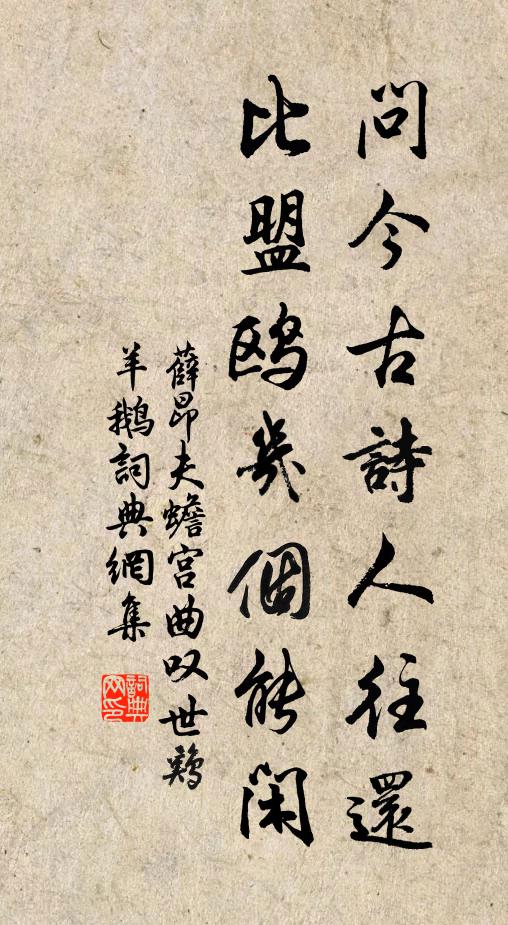 問今古詩人往還
比盟鸥幾個能閑
薛昂夫蟾宫曲叹世鷄
羊鵝詞典網集
詞典網印